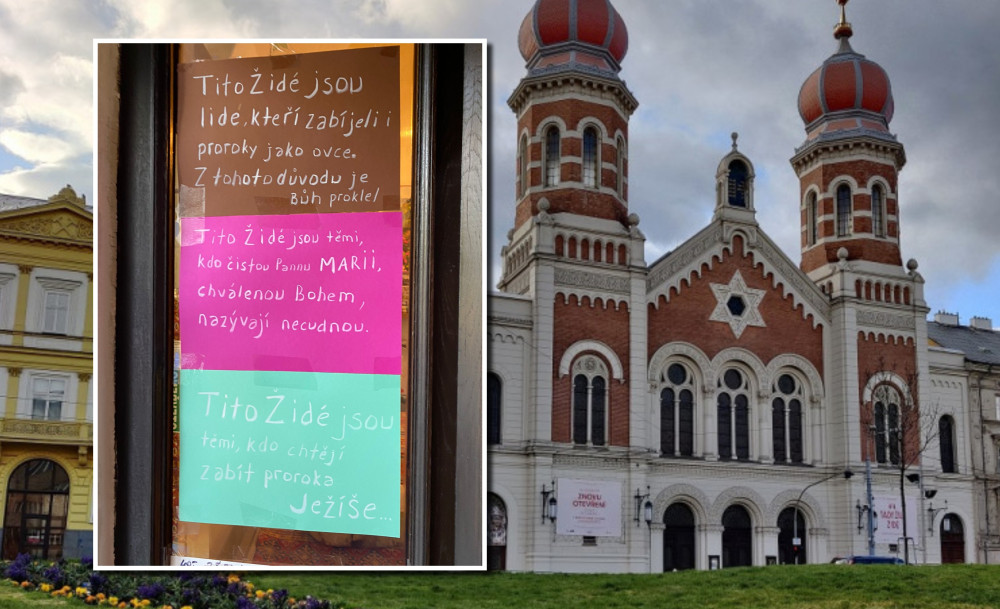 Tito Židé jsou
lidé, kteří zabíjeli i
proroky jako ovce.
Z tohoto důvodu je
Bůh proklel
Tito Židé jsou těmi,
kdo čistou Pannu MARII,
chválenou Bohem,
nazývají necudnou.
Tito Židé jsou
těmi, kdo chtějí
zabít proroka
Ježíše...
ZNOVU
OTEVŘENÍ